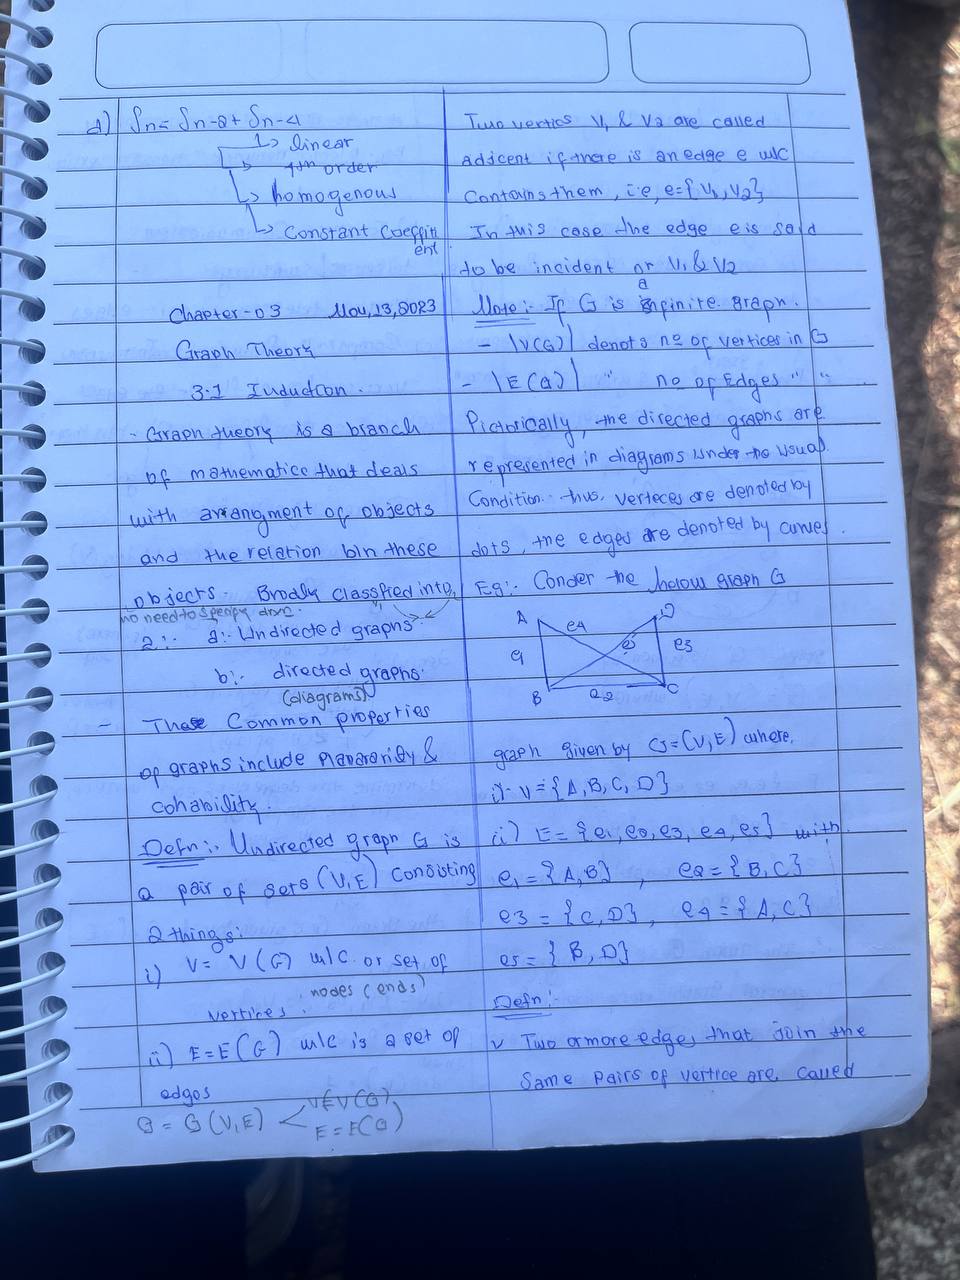 d) Sn = Sn-2 + Sn-4
1> linear
4th order
homogenous
Constant Coeffiti
ent
Chapter-03 Nov, 13, 2023
Graph Theory
3.1 Induction.
- Graph theory is a branch
of mathematics that deals
with arrangment of objects
and the relation b/n these
objects. Brodly classfied into,
no need to speify dirn.
2:. a:- Undirected graphs
b:- directed graphs.
(diagrams)
- These Common properties
of graphs include Planararidy &
cohability.
Defn:. Undirected graph G is
a pair of sets (V,E) Consisting
2 things:
i) V= V(G) w/c or set of
nodes (ends)
vertices.
ii) E=E(G) w/c is a set of
edges
G = G(V,E) < V∈V(G)
E = E(G)
Two vertics V1 & V2 are called
adjcent if there is an edge e w/c
Contains them, i.e, e={V1,V2}
In this case the edge e is said
to be incident or V1 & V2
a
Note:- If G is infinite graph.
- |V(G)| denots no of vertices in G
- |E(G)| " no of Edges " "
Pictorically, the directed graphs are
represented in diagrams under the usual
Condition. thus, verteces are denoted by
dots, the edges are denoted by curves.
Eg:. Conder the below graph G
A e4 D
e1 e5 e3
B e2 C
graph given by G=(V,E) where,
i)- V={A,B,C,D}
ii) E={e1,e2,e3,e4,e5} with
e1={A,B} , e2={B,C}
e3={C,D}, e4={A,C}
e5={B,D}
Defn:-
v Two or more edges that Join the
Same Pairs of vertice are, called